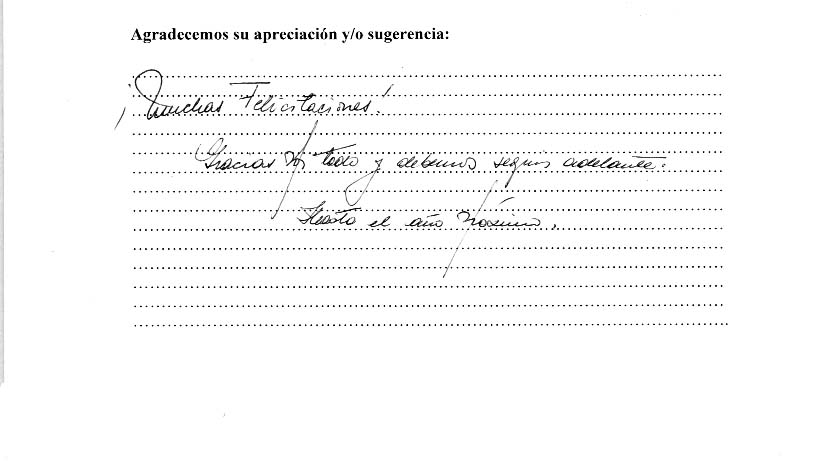 Agradecemos su apreciación y/o sugerencia:
¡Muchas Felicitaciones!
Gracias por todo y debemos seguir adelante.
Hasta el año próximo.